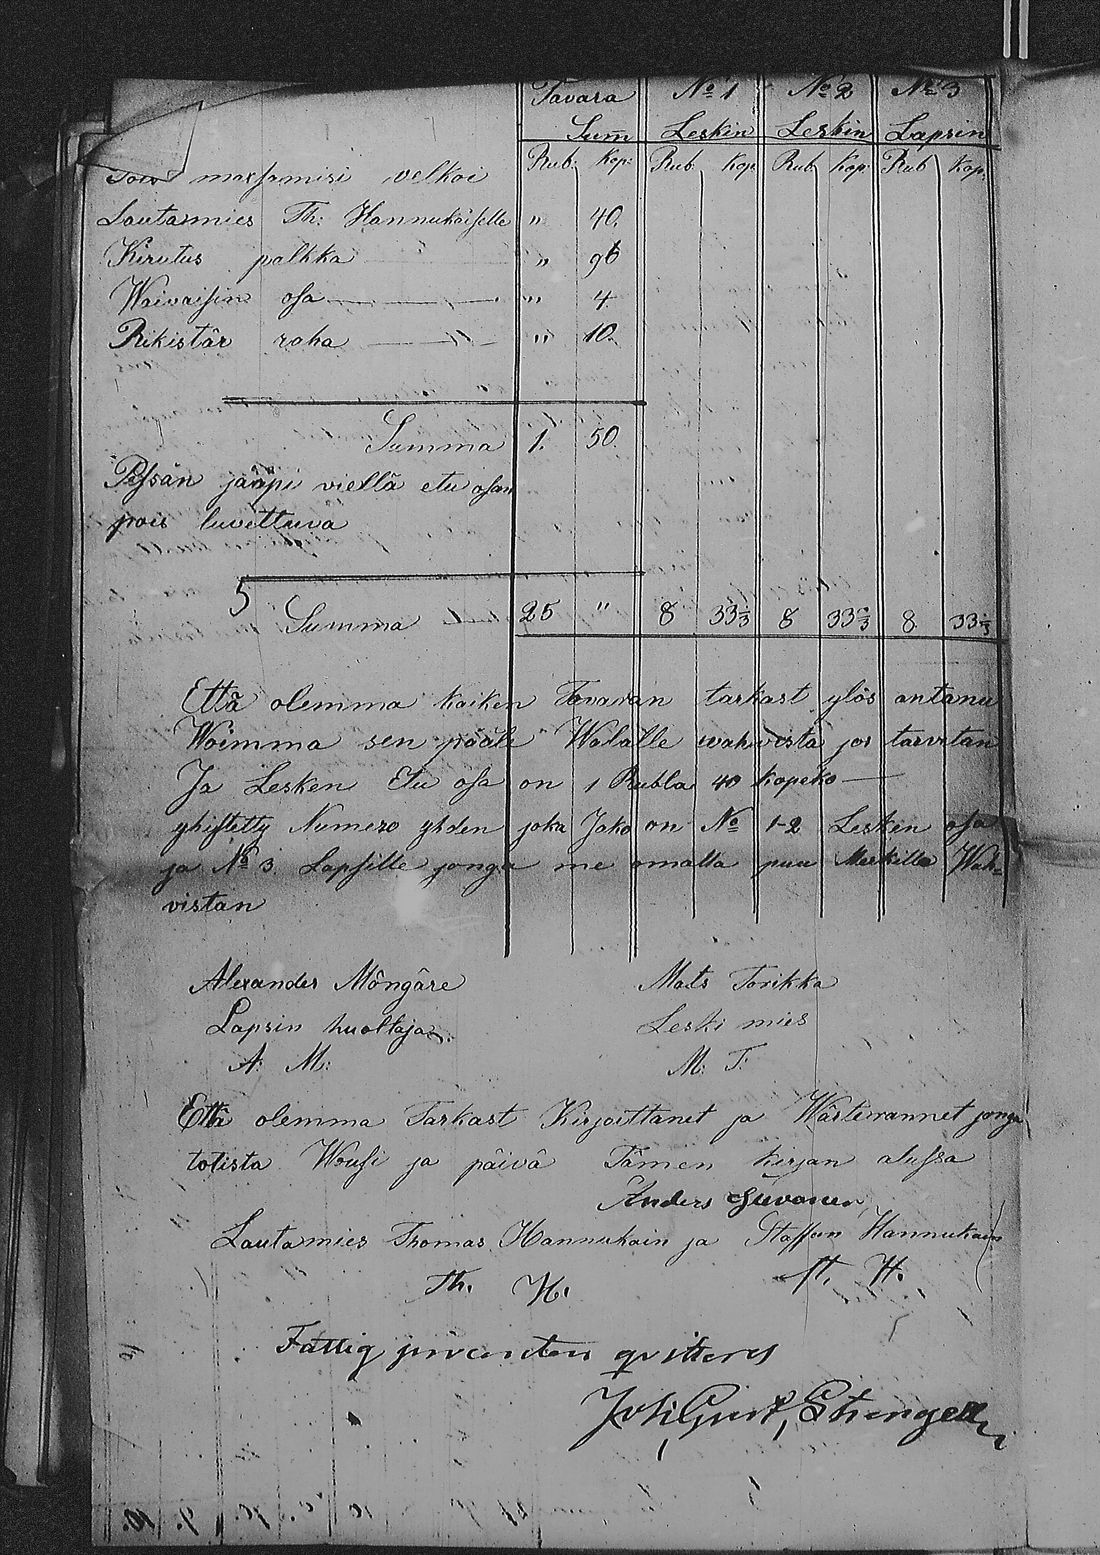 Tavara No 1 No 2 No 3
Sum Leskin Leskin Lapsin
Rub. Kop: Rub Kop Rub Kop Rub Kop.
maxsamisi velkoi
Lautamies Th: Hannukaiselle " 40.
Kirutus palkka " 96
Waivaisin osa " 4
Rikistär raha " 10.
Summa 1. 50.
Pesän jääpi viellä etu osan
pois luvettuva
5
Summa 25 " 8 33 1/3 8 33 1/3 8 33 1/3
Että olemma kaiken Tavaran tarkast ylös antanu
Woimma sen pääle Walalle wahvista jos tarvitan
Ja Lesken Etu osa on 1 Rubla 40 Kopeko
yhistetty Numero yhden joka Jako on No 1-2 Leskin osa
ja No 3 Lapsille jonga me omalla puu Merkillä Wah=
vistan
Alexander Möngäre Mats Torikka
Lapsin huoltaja. Leski mies
A: M: M: T:
Että olemma Tarkast Kirjoittanet ja Wärterannet jonga
totista Wousi ja päivä Tämen kirjan alussa
Anders
Lautamies Thomas Hannukain ja Staffan Hannukain
Th. H. St. H.
Fattig procenten qvitteras
Joh: Gust, Strengell
10. 9.